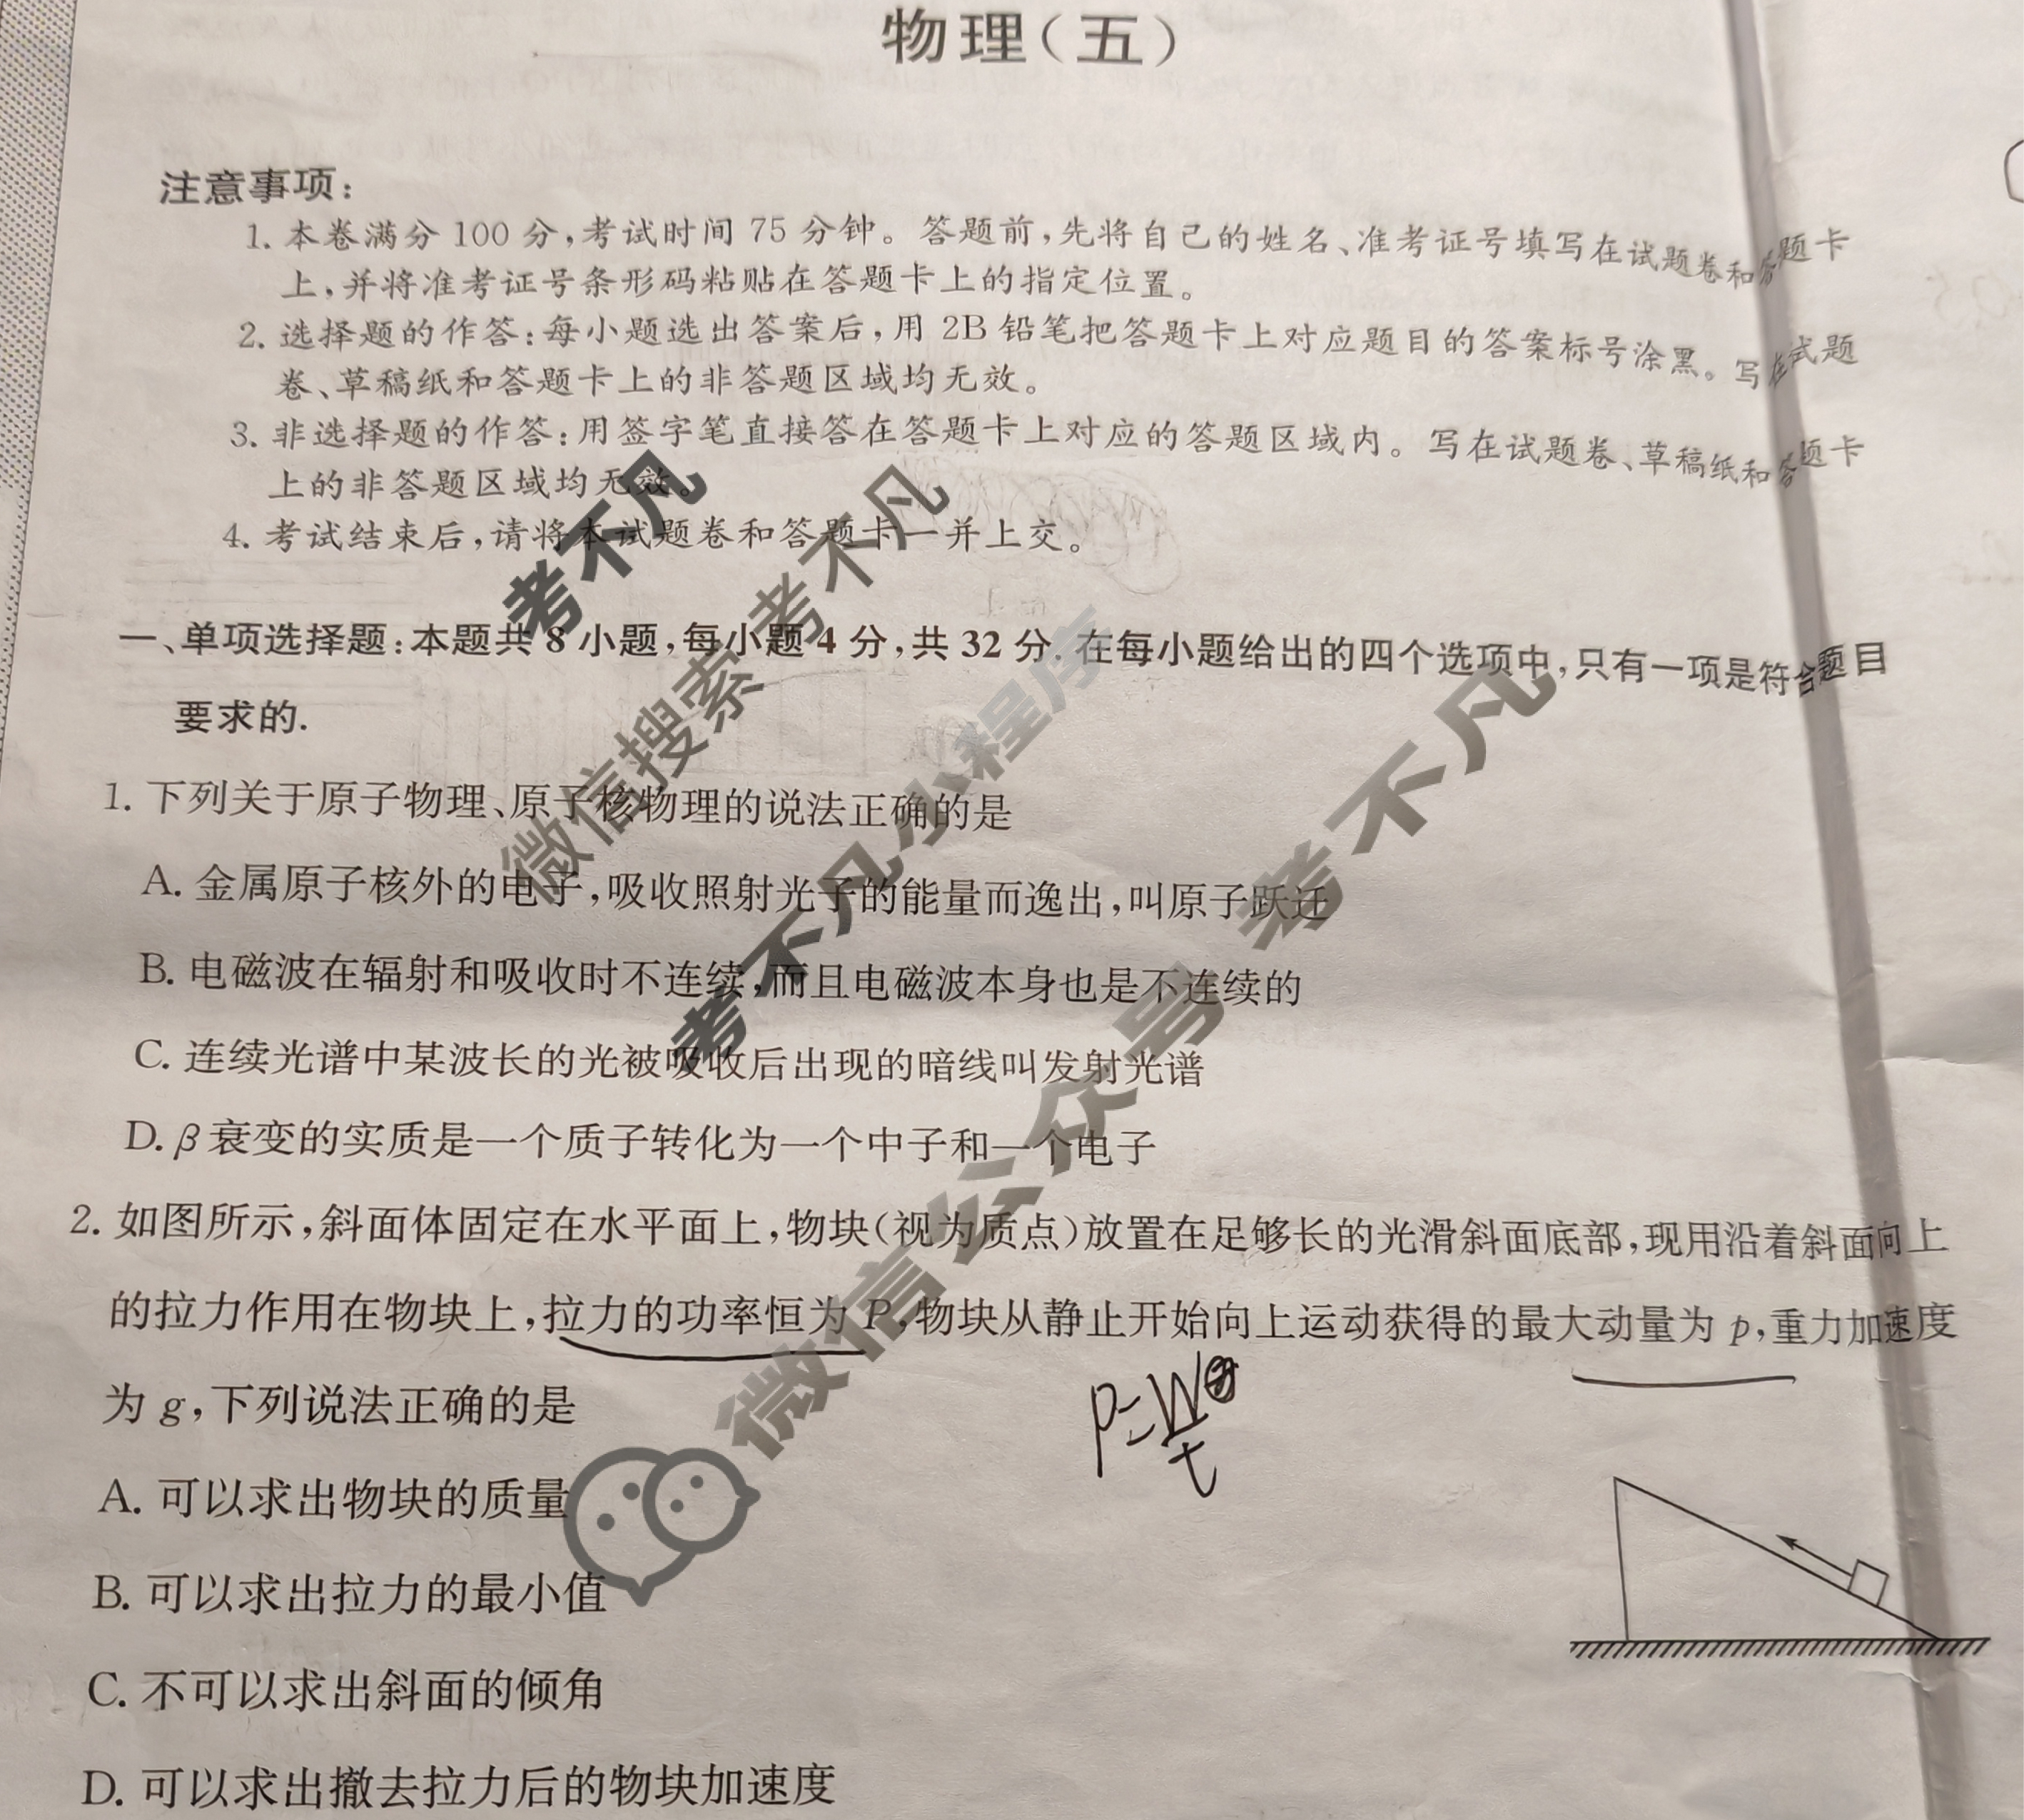 物理(五)
注意事项:
1. 本卷满分 100 分,考试时间 75 分钟。答题前,先将自己的姓名、准考证号填写在试题卷和答题卡
上,并将准考证号条形码粘贴在答题卡上的指定位置。
2. 选择题的作答:每小题选出答案后,用 2B 铅笔把答题卡上对应题目的答案标号涂黑。写在试题
卷、草稿纸和答题卡上的非答题区域均无效。
3. 非选择题的作答:用签字笔直接答在答题卡上对应的答题区域内。写在试题卷、草稿纸和答题卡
上的非答题区域均无效。
4. 考试结束后,请将本试题卷和答题卡一并上交。
一、单项选择题:本题共 8 小题,每小题 4 分,共 32 分. 在每小题给出的四个选项中,只有一项是符合题目
要求的.
1. 下列关于原子物理、原子核物理的说法正确的是
A. 金属原子核外的电子,吸收照射光子的能量而逸出,叫原子跃迁
B. 电磁波在辐射和吸收时不连续,而且电磁波本身也是不连续的
C. 连续光谱中某波长的光被吸收后出现的暗线叫发射光谱
D. β 衰变的实质是一个质子转化为一个中子和一个电子
2. 如图所示,斜面体固定在水平面上,物块(视为质点)放置在足够长的光滑斜面底部,现用沿着斜面向上
的拉力作用在物块上,拉力的功率恒为 P,物块从静止开始向上运动获得的最大动量为 p,重力加速度
为 g,下列说法正确的是
P=W/t
A. 可以求出物块的质量
B. 可以求出拉力的最小值
C. 不可以求出斜面的倾角
D. 可以求出撤去拉力后的物块加速度
考不凡
微信搜索 考不凡
考不凡小程序
微信公众号 考不凡